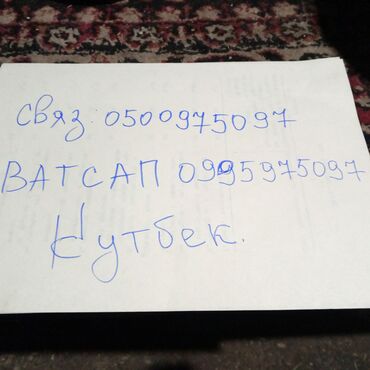 связ. 0500975097
ВАТСАП 0995975097
Кутбек.